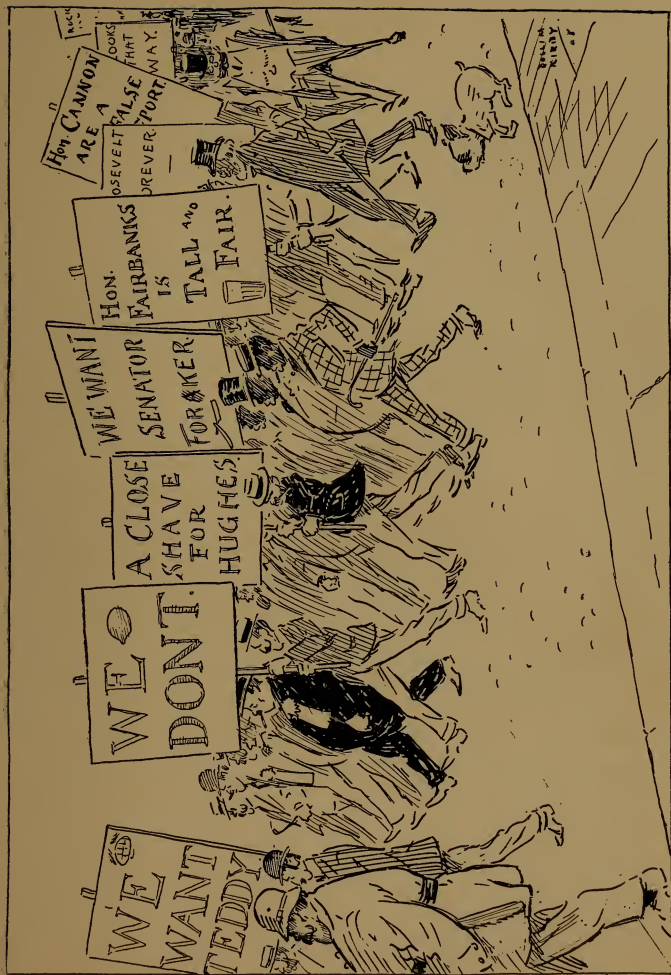 WE
WANT
TEDDY
WE
DON'T.
A CLOSE
SHAVE
FOR
HUGHES.
WE WANT
SENATOR
FORAKER
HON.
FAIRBANKS
IS
TALL AND
FAIR.
OSEVELT
OREVER
HON. CANNON
ARE A
FALSE
PORT
OOKS
THAT
WAY.
ROLLIN
KIRBY
08